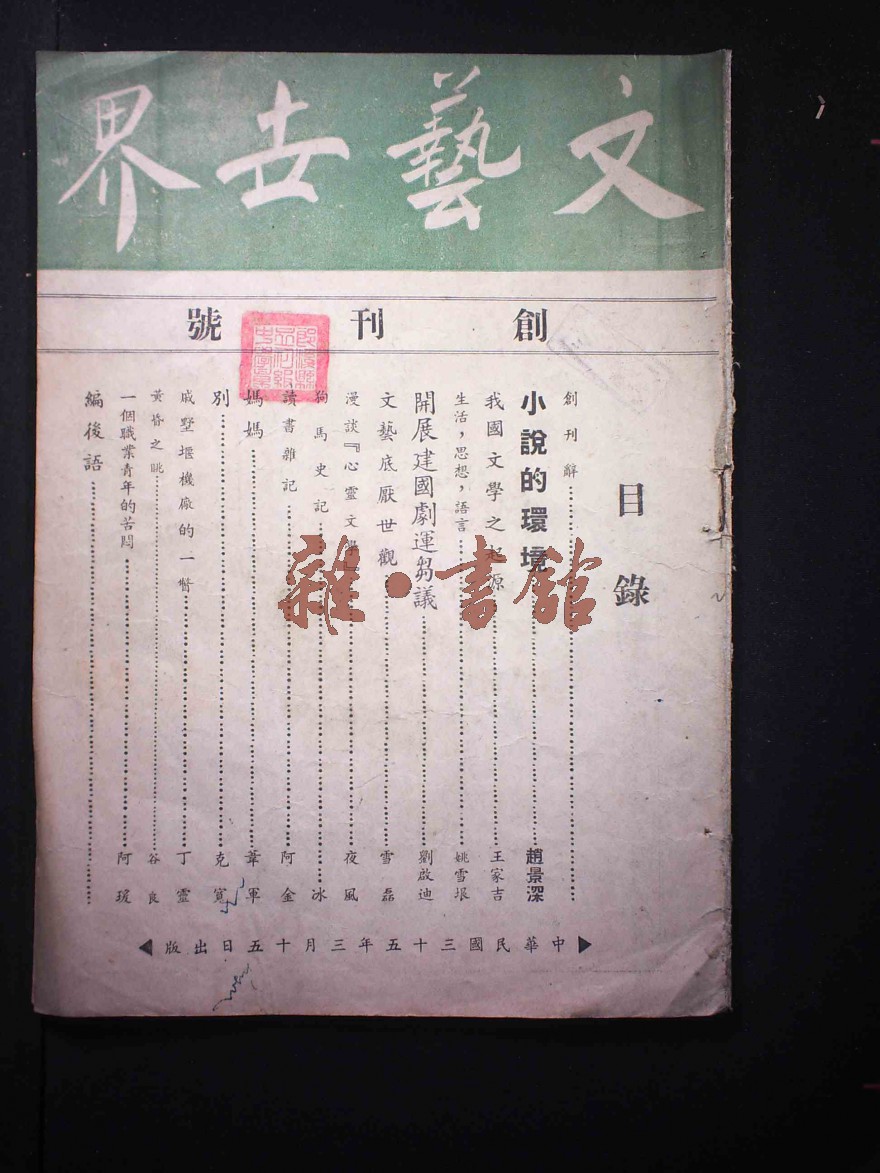 文藝世界
創刊號
目錄
創刊辭
小說的環境 趙景深
我國文學之起源 王家吉
生活，思想，語言 姚雪垠
開展建國劇運芻議 劉啟迪
文藝底厭世觀 雪磊
漫談『心靈文學』 夜風
狗馬史記 冰
讀書雜記 阿金
媽媽 葦軍
別 克寬
戚墅堰機廠的一瞥 丁靈
黃昏之眺 谷良
一個職業青年的苦悶 阿瑗
編後語
中華民國三十五年三月十五日出版
雜·書館